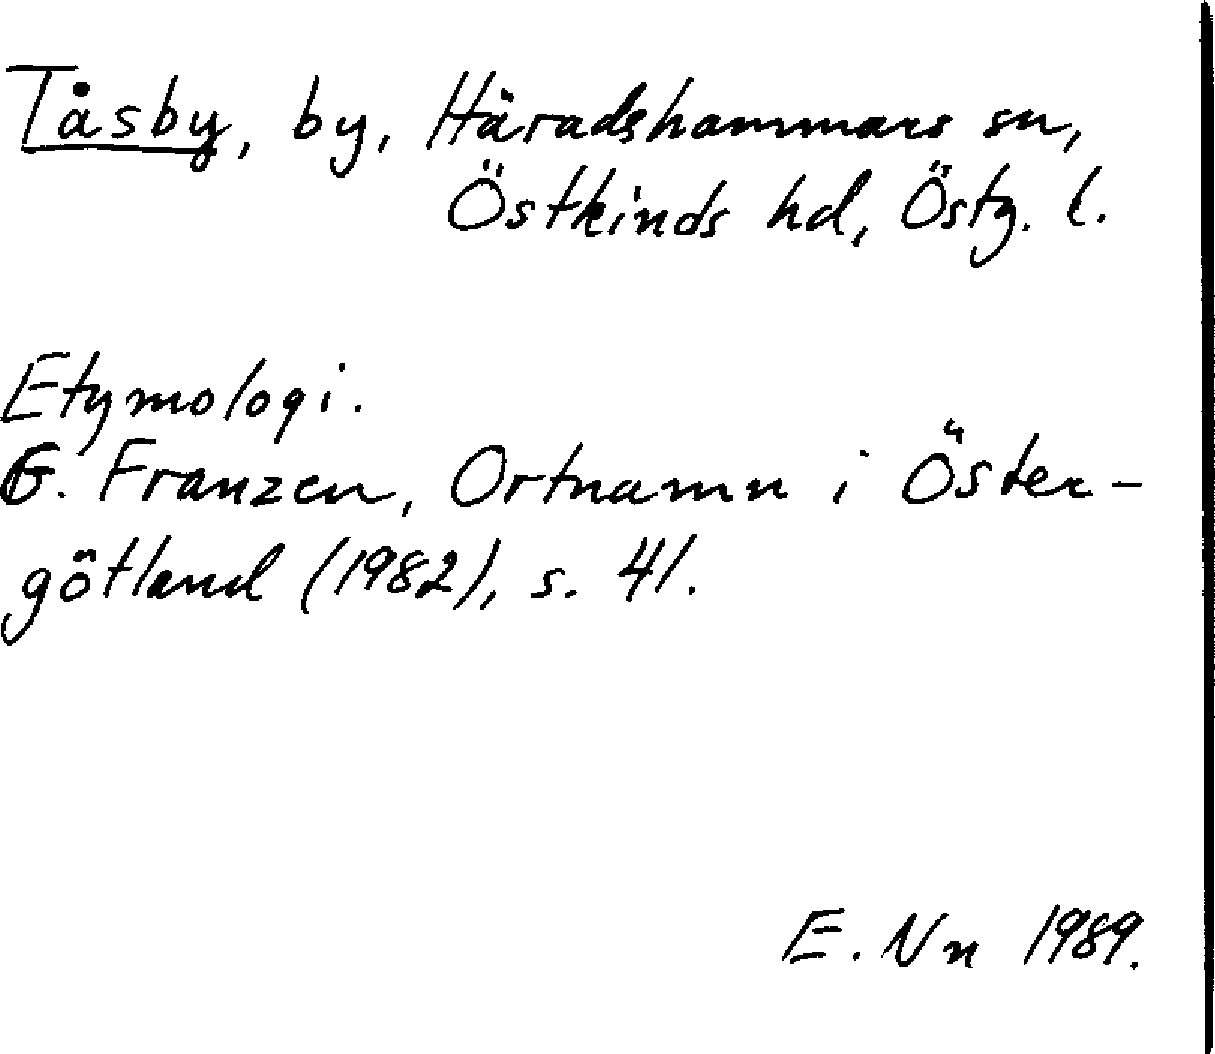 Tåsby, by, Häradshammars sn,
Östkinds hd, Östg. l.
Etymologi.
G. Franzen, Ortnamn i Öster-
götland (1982), s. 41.
E. Nn 1989.